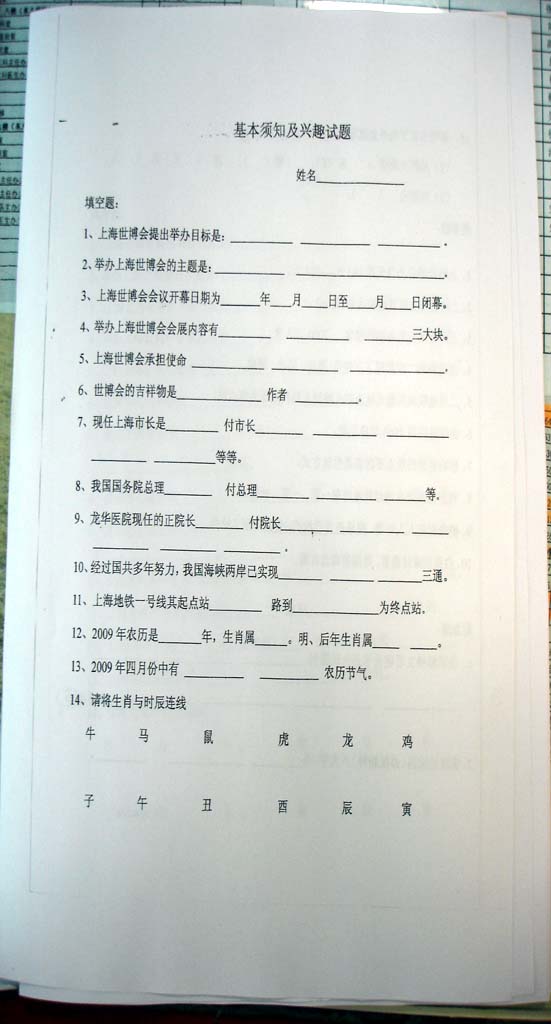 基本须知及兴趣试题
姓名______________
填空题：
1、上海世博会提出举办目标是：__________ ___________ ___________.
2、举办上海世博会的主题是：___________ ________________________.
3、上海世博会会议开幕日期为______年___月____日至____月____日闭幕。
4、举办上海世博会会展内容有__________ ___________ __________三大块。
5、上海世博会承担使命 ____________ ____________ ____________.
6、世博会的吉祥物是_____________ 作者 __________.
7、现任上海市长是________ 付市长________ __________ __________
_________ __________等等。
8、我国国务院总理________ 付总理_________ ________ ________等。
9、龙华医院现任的正院长________ 付院长_______ ________ ______
_________ _________ _________.
10、经过国共多年努力，我国海峡两岸已实现_______ _______ _______三通。
11、上海地铁一号线其起点站_________ 路到______________为终点站。
12、2009年农历是_______年，生肖属_____。明、后年生肖属____ ____。
13、2009年四月份中有 __________ __________ 农历节气。
14、请将生肖与时辰连线
牛 马 鼠 虎 龙 鸡
子 午 丑 酉 辰 寅